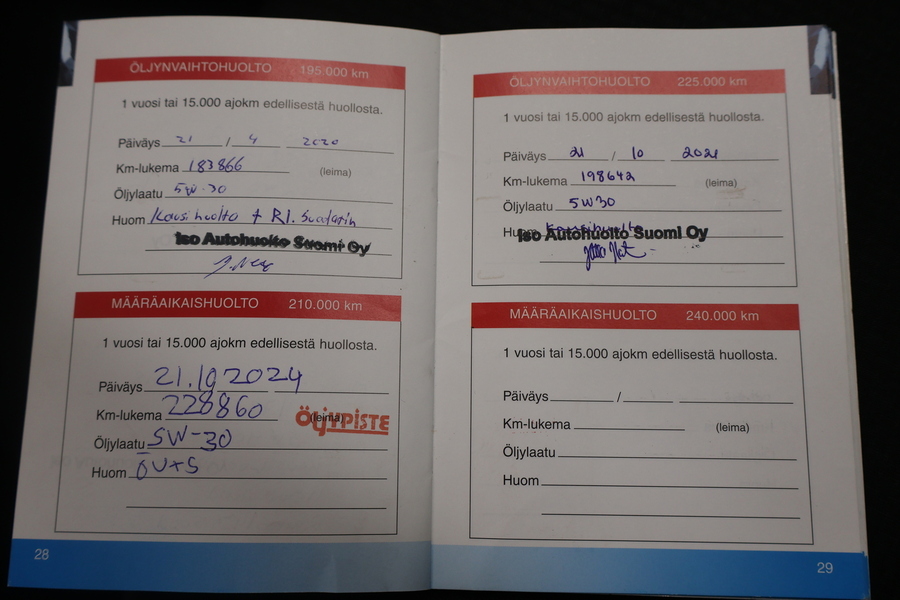 ÖLJYNVAIHTOHUOLTO 195.000 km
1 vuosi tai 15.000 ajokm edellisestä huollosta.
Päiväys 21 / 4 2020
Km-lukema 183866 (leima)
Öljylaatu 5W-30
Huom Kausihuolto + RI. Suodatin
Iso Autohuolto Suomi Oy
MÄÄRÄAIKAISHUOLTO 210.000 km
1 vuosi tai 15.000 ajokm edellisestä huollosta.
Päiväys 21.10 2024
Km-lukema 228860 (leima)
ÖLJYPISTE
Öljylaatu 5W-30
Huom ÖV+S
28
ÖLJYNVAIHTOHUOLTO 225.000 km
1 vuosi tai 15.000 ajokm edellisestä huollosta.
Päiväys 21 / 10 2021
Km-lukema 198642 (leima)
Öljylaatu 5W30
Huom
Iso Autohuolto Suomi Oy
MÄÄRÄAIKAISHUOLTO 240.000 km
1 vuosi tai 15.000 ajokm edellisestä huollosta.
Päiväys /
Km-lukema (leima)
Öljylaatu
Huom
29